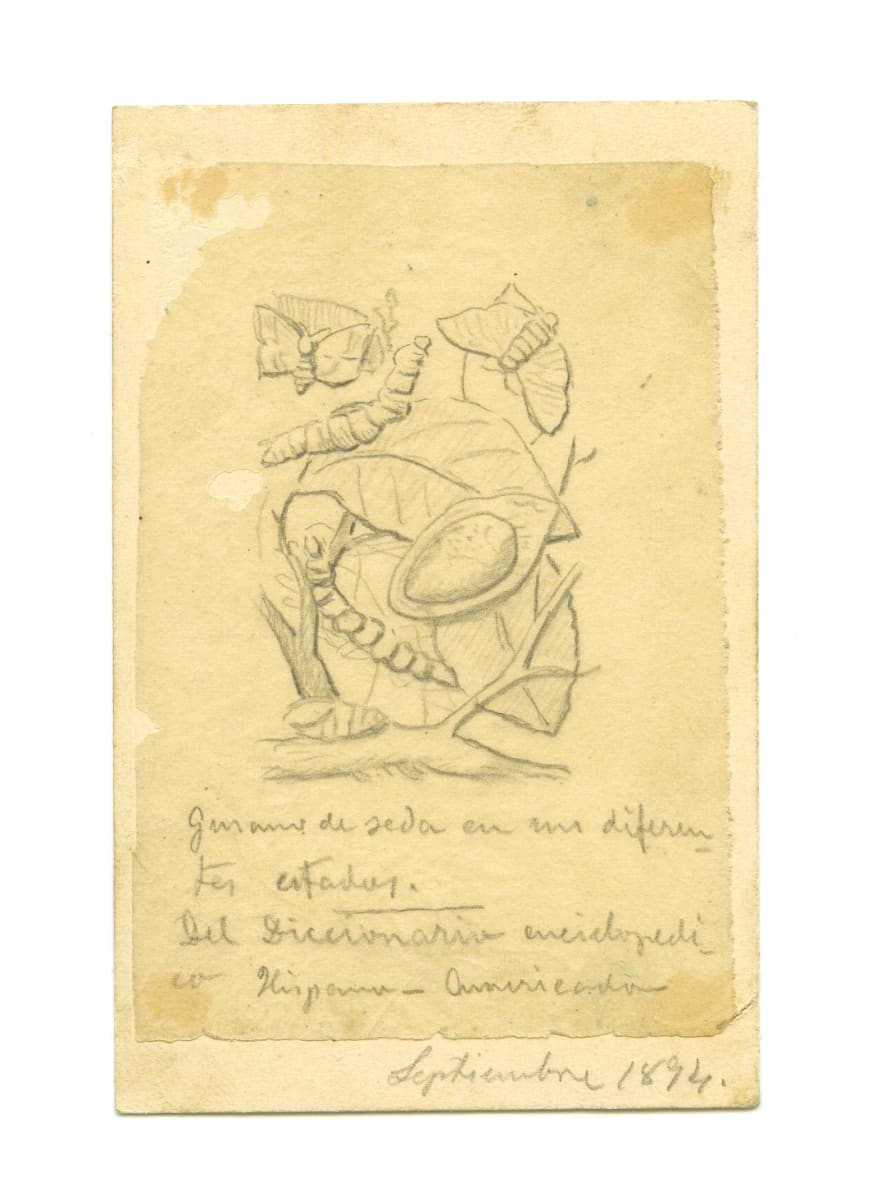 Gusano de seda en sus diferen-
tes estados.
Del Diccionario enciclopedi-
co Hispano-Americado
Septiembre 1894.